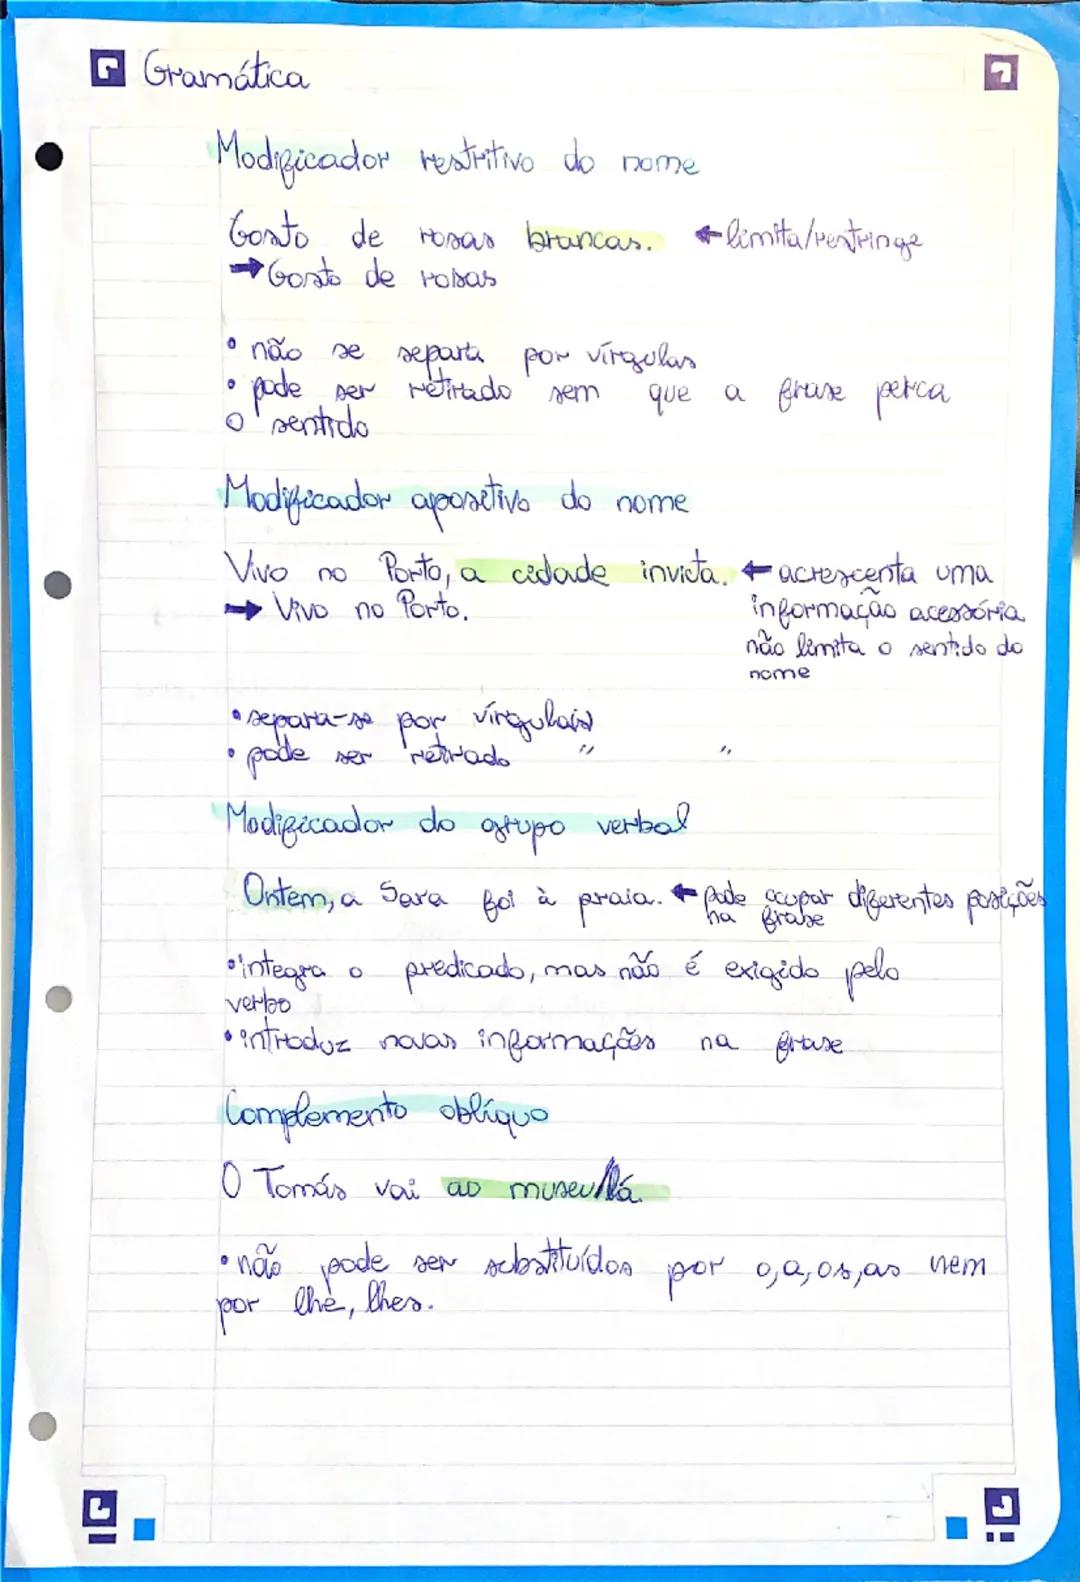 Gramática
Modificador restritivo do nome
Gosto de rosas brancas. ← limita/restringe
→ Gosto de rosas
• não se separa por vírgulas
• pode ser retirado sem que a frase perca
o sentido
Modificador apositivo do nome
Vivo no Porto, a cidade invicta. ← acrescenta uma
→ Vivo no Porto. informação acessória
não limita o sentido do
nome
• separa-se por vírgula(s)
• pode ser retirado " "
Modificador do grupo verbal
Ontem, a Sara foi à praia. ← pode ocupar diferentes posições
na frase
• integra o predicado, mas não é exigido pelo
verbo
• introduz novas informações na frase
Complemento oblíquo
O Tomás vai ao museu/lá.
• não pode ser substituídos por o, a, os, as nem
por lhe, lhes.